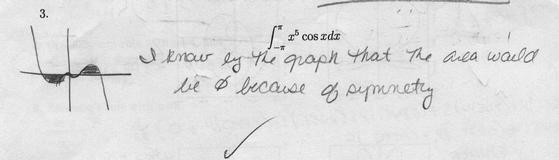 3.
∫_{-π}^{π} x⁵ cos xdx
I know by the graph that the area would
be Ø because of symmetry